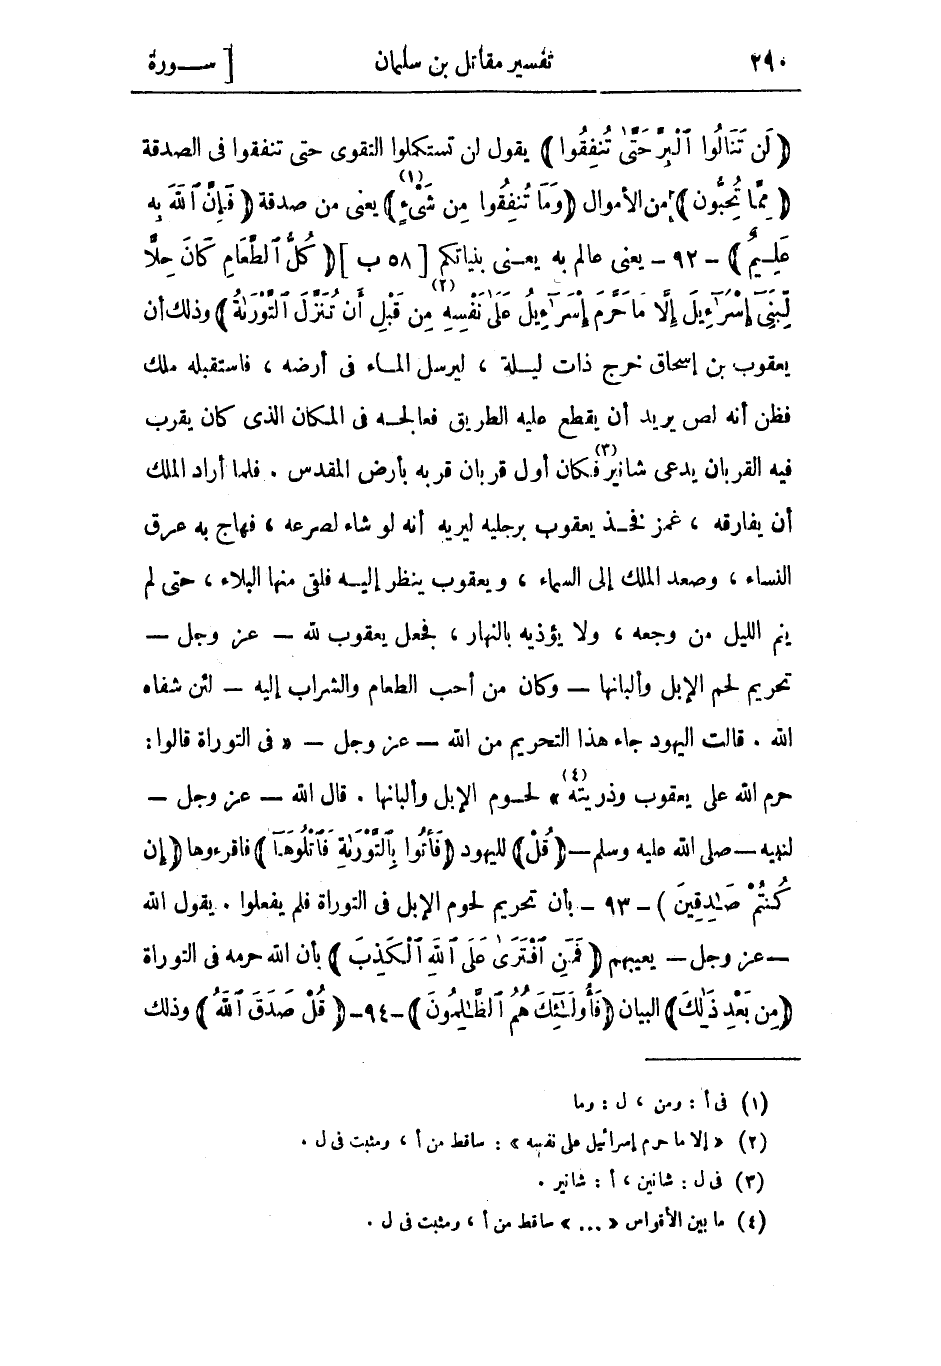 ٢٩٠ تفسير مقاتل بن سليمان [ ســورة
﴿لَن تَنَالُوا ٱلْبِرَّ حَتَّىٰ تُنفِقُوا﴾ يقول لن تستكملوا التقوى حتى تنفقوا فى الصدقة
﴿ مِمَّا تُحِبُّون﴾ من الأموال ﴿وَمَا تُنفِقُوا مِن شَىْءٍ(١)﴾ يعنى من صدقة ﴿ فَإِنَّ ٱللَّهَ بِهِ
عَلِيمٌ﴾ – ٩٢ – يعنى عالم به يعـنى بنياتكم [ ٥٨ ب ] ﴿ كُلُّ ٱلطَّعَامِ كَانَ حِلًّا
لِّبَنِىٓ إِسْرَٰٓءِيلَ إِلَّا مَا حَرَّمَ إِسْرَٰٓءِيلُ عَلَىٰ نَفْسِهِ(٢) مِن قَبْلِ أَن تُنَزَّلَ ٱلتَّوْرَىٰةُ﴾ وذلك أن
يعقوب بن إسحاق خرج ذات ليـلة ، ليرسل المـاء فى أرضه ، فاستقبله ملك
فظن أنه لص يريد أن يقطع عليه الطريق فعالجـه فى المكان الذى كان يقرب
فيه القربان يدعى شانير(٣) فكان أول قربان قربه بأرض المقدس . فلما أراد الملك
أن يفارقه ، غمز فخـذ يعقوب برجليه ليريه أنه لو شاء لصرعه ، فهاج به عرق
النساء ، وصعد الملك إلى السماء ، ويعقوب ينظر إليـه فلقى منها البلاء ، حتى لم
ينم الليل من وجعه ، ولا يؤذيه بالنهار ، فجعل يعقوب لله — عز وجل —
تحريم لحم الإبل وألبانها — وكان من أحب الطعام والشراب إليه — لئن شفاه
الله . قالت اليهود جاء هذا التحريم من الله — عز وجل — « فى التوراة قالوا:
حرم الله على يعقوب وذريته(٤) » لحـوم الإبل وألبانها . قال الله — عز وجل —
لنبيه — صلى الله عليه وسلم — ﴿ قُلْ﴾ لليهود ﴿فَأْتُوا بِٱلتَّوْرَىٰةِ فَٱتْلُوهَآ﴾ فاقرءوها ﴿إِن
كُنتُمْ صَـٰدِقِينَ ﴾ – ٩٣ – بأن تحريم لحوم الإبل فى التوراة فلم يفعلوا . يقول الله
— عز وجل — يعيبهم ﴿ فَمَنِ ٱفْتَرَىٰ عَلَى ٱللَّهِ ٱلْكَذِبَ ﴾ بأن الله حرمه فى التوراة
﴿مِن بَعْدِ ذَٰلِكَ﴾ البيان ﴿فَأُولَـٰٓئِكَ هُمُ ٱلظَّـٰلِمُونَ﴾ – ٩٤ – ﴿ قُلْ صَدَقَ ٱللَّهُ ﴾ وذلك
(١) فى أ : ومن ، ل : وما
(٢) « إلا ما حرم إسرائيل على نفسه » : ساقط من أ ، ومثبت فى ل .
(٣) فى ل : شانين ، أ : شانير .
(٤) ما بين الأقواس « ... » ساقط من أ ، ومثبت فى ل .